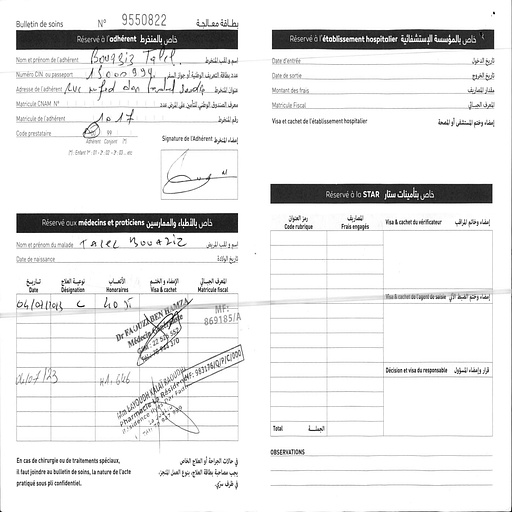 Bulletin de soins N° 9550822 بطاقة معالجة
Réservé à l'adhérent خاص بالمنخرط
Nom et prénom de l'adhérent Bouaziz Talel اسم و لقب المنخرط
Numéro CIN ou passeport عدد بطاقة التعريف الوطنية أو جواز السفر
Adresse de l'adhérent Rue عنوان المنخرط
Matricule CNAM N° معرف الصندوق الوطني للتأمين على المرض عدد
Matricule de l'adhérent 1017 رقم المنخرط
Code prestataire 99
Adhérent Conjoint
Signature de l'Adhérent إمضاء المنخرط
Réservé aux médecins et praticiens خاص بالأطباء والممارسين
Nom et prénom du malade TALEL BOUAZIZ اسم و لقب المريض
Date de naissance تاريخ الولادة
تاريخ نوعية العلاج الأتعاب الإمضاء و الختم المعرف الجبائي
Date Désignation Honoraires Visa & cachet Matricule fiscal
C
Dr FAOUZI BEN HAMZA
MF:
869185/A
04/07/23 41.646
MF: 983176/Q/P/C/000
En cas de chirurgie ou de traitements spéciaux,
il faut joindre au bulletin de soins, la nature de l'acte
pratiqué sous pli confidentiel.
في حالات الجراحة أو العلاج الخاص
يجب مصاحبة بطاقة العلاج، بنوع العمل المنجز،
في ظرف سري.
Réservé à l'établissement hospitalier خاص بالمؤسسة الإستشفائية
Date d'entrée تاريخ الدخول
Date de sortie تاريخ الخروج
Montant des frais مقدار المصاريف
Matricule Fiscal المعرف الجبائي
Visa et cachet de l'établissement hospitalier إمضاء وختم المستشفى أو المصحة
Réservé à la STAR خاص بتأمينات ستار
رمز العنوان المصاريف
Code rubrique Frais engagés
Visa & cachet du vérificateur إمضاء وختم المراقب
Visa & cachet de l'agent de saisie إمضاء وختم الضبط الآلي
Décision et visa du responsable قرار وإمضاء المسؤول
Total الجملة
OBSERVATIONS